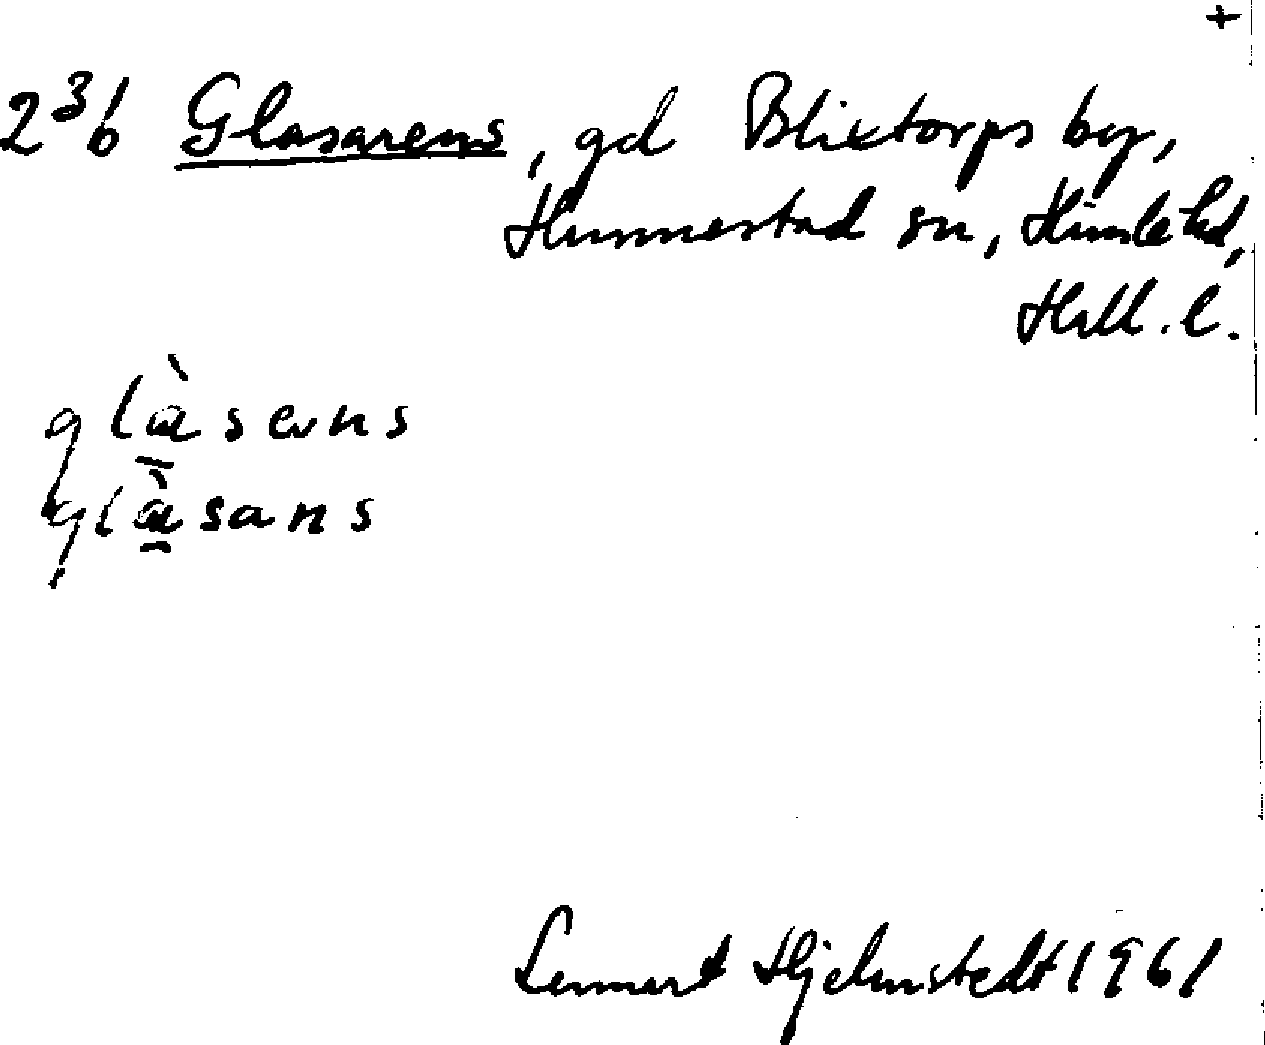 +
2³b Glasarens, gd Blixtorps by,
Hunnestad sn, Himle hd,
Hall. l.
glàsɐns
glàsans
Lennart Hjelmstedt 1961